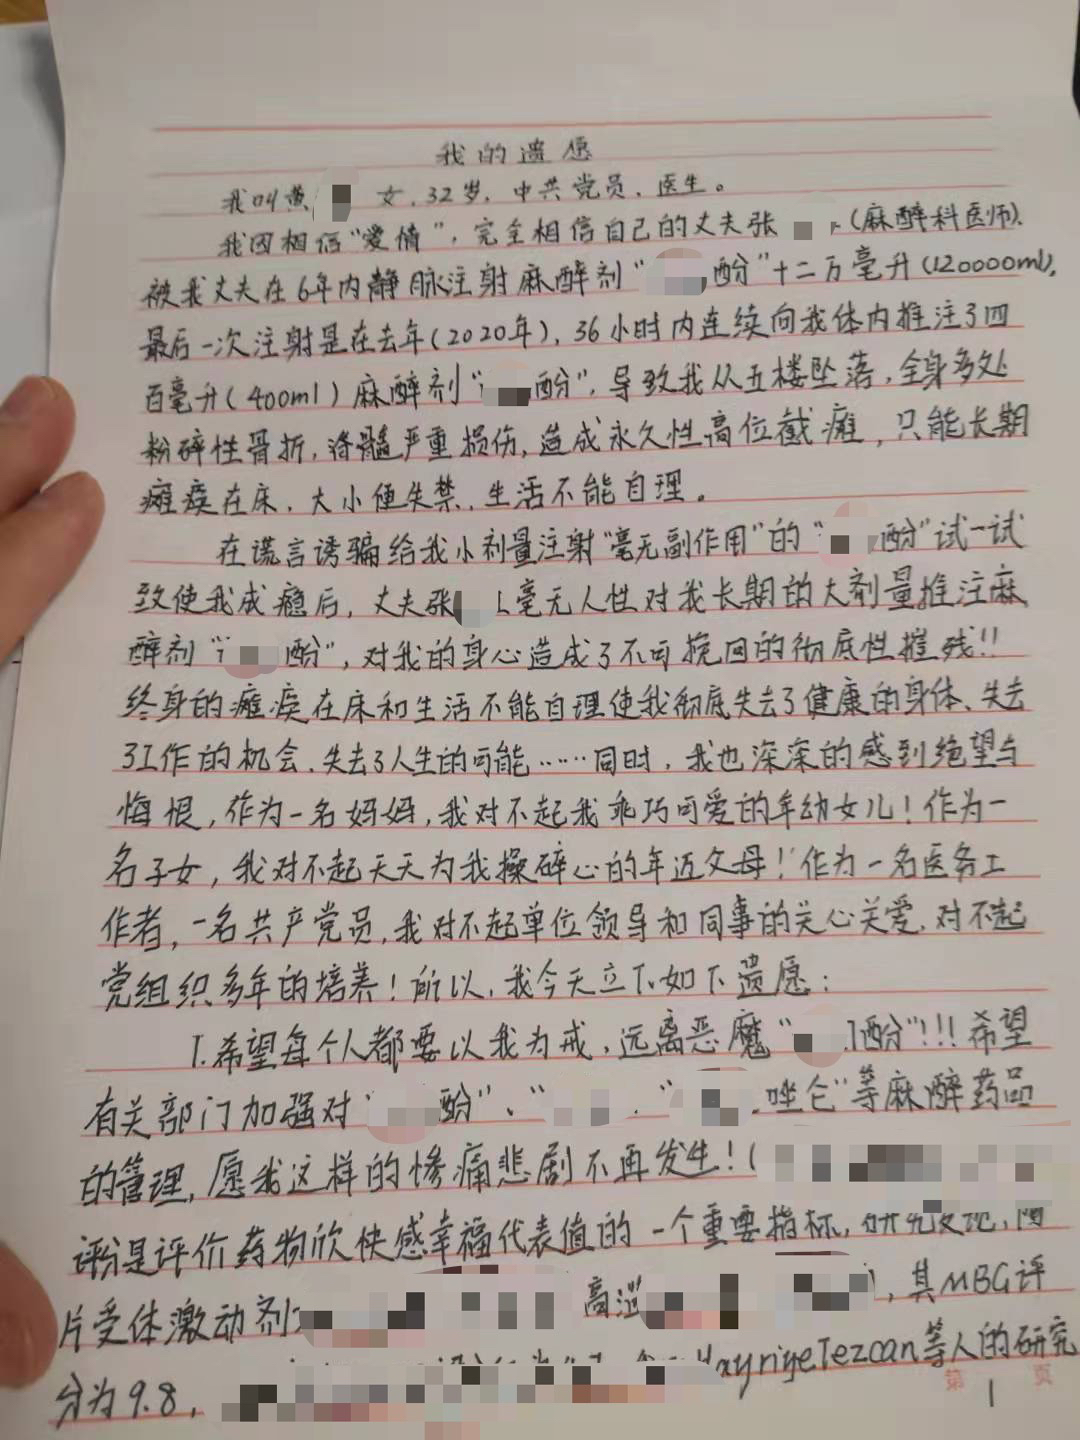 我的遗愿
我叫黄 女，32岁，中共党员，医生。
我因相信“爱情”，完全相信自己的丈夫张 （麻醉科医师），
被我丈夫在6年内静脉注射麻醉剂“ 酚”十二万毫升（120000ml），
最后一次注射是在去年（2020年），36小时内连续向我体内推注了四
百毫升（400ml）麻醉剂“ 酚”，导致我从五楼坠落，全身多处
粉碎性骨折，脊髓严重损伤，造成永久性高位截瘫，只能长期
瘫痪在床，大小便失禁，生活不能自理。
在谎言诱骗给我小剂量注射“毫无副作用”的“ 酚”试一试
致使我成瘾后，丈夫张 毫无人性对我长期的大剂量推注麻
醉剂“ 酚”，对我的身心造成了不可挽回的彻底性摧残！！
终身的瘫痪在床和生活不能自理使我彻底失去了健康的身体、失去
了工作的机会、失去了人生的可能……同时，我也深深的感到绝望与
悔恨，作为一名妈妈，我对不起我乖巧可爱的年幼女儿！作为一
名子女，我对不起天天为我操碎心的年迈父母！作为一名医务工
作者，一名共产党员，我对不起单位领导和同事的关心关爱，对不起
党组织多年的培养！所以，我今天立下如下遗愿：
1.希望每个人都要以我为戒，远离恶魔“ 酚”！！！希望
有关部门加强对“ 酚”、“ 、“ 唑仑”等麻醉药品
的管理，愿我这样的惨痛悲剧不再发生！（
评分是评价药物欣快感幸福代表值的一个重要指标，研究发现，阿
片受体激动剂 高 ），其MBG评
分为9.8， ayriyeTezcan等人的研究
第 1 页